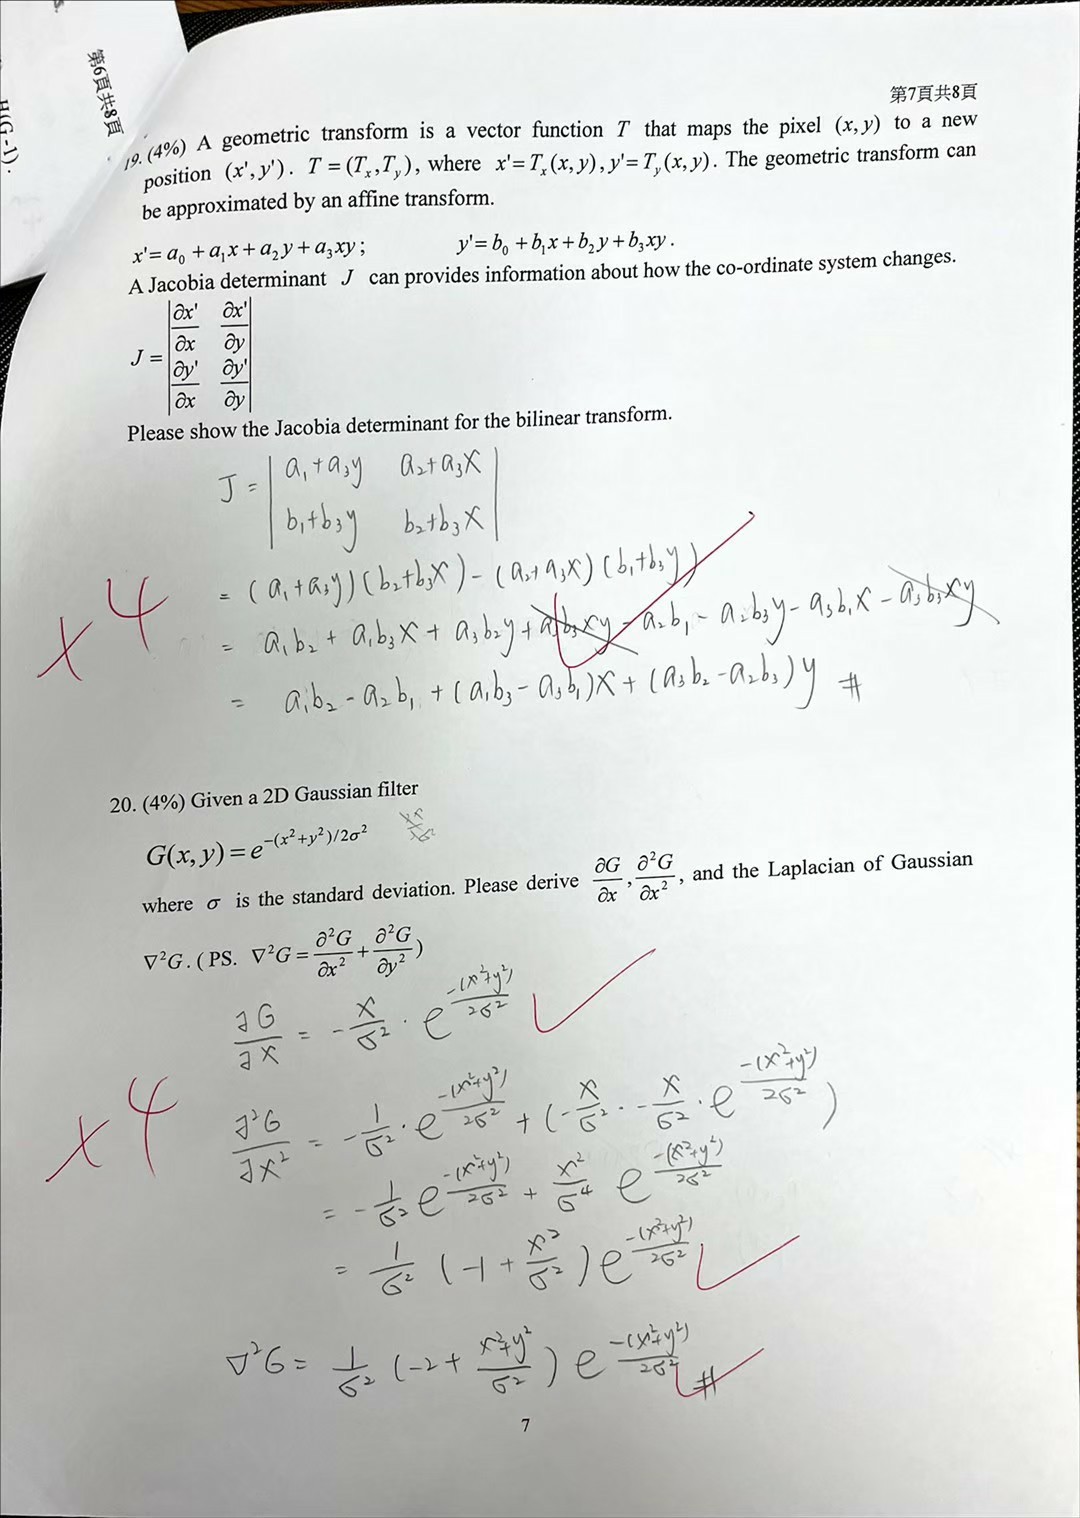 第6頁共8頁
H(G-1).
第7頁共8頁
19. (4%) A geometric transform is a vector function T that maps the pixel (x, y) to a new
position (x', y'). T = (Tₓ, Tᵧ), where x' = Tₓ(x, y), y' = Tᵧ(x, y). The geometric transform can
be approximated by an affine transform.
x' = a₀ + a₁x + a₂y + a₃xy; y' = b₀ + b₁x + b₂y + b₃xy.
A Jacobia determinant J can provides information about how the co-ordinate system changes.
J = | ∂x'/∂x ∂x'/∂y |
| ∂y'/∂x ∂y'/∂y |
Please show the Jacobia determinant for the bilinear transform.
J = | a₁+a₃y a₂+a₃x |
| b₁+b₃y b₂+b₃x |
= (a₁+a₃y)(b₂+b₃x) - (a₂+a₃x)(b₁+b₃y)
+4
= a₁b₂ + a₁b₃x + a₃b₂y + a₃b₃xy - a₂b₁ - a₂b₃y - a₃b₁x - a₃b₃xy
= a₁b₂ - a₂b₁ + (a₁b₃ - a₃b₁)x + (a₃b₂ - a₂b₃)y #
20. (4%) Given a 2D Gaussian filter
G(x, y) = e^(-(x²+y²)/2σ²)
where σ is the standard deviation. Please derive ∂G/∂x, ∂²G/∂x², and the Laplacian of Gaussian
∇²G. (PS. ∇²G = ∂²G/∂x² + ∂²G/∂y²)
∂G/∂x = -x/σ² · e^(-(x²+y²)/2σ²)
+4
∂²G/∂x² = -1/σ² · e^(-(x²+y²)/2σ²) + (-x/σ² · -x/σ² · e^(-(x²+y²)/2σ²))
= -1/σ² e^(-(x²+y²)/2σ²) + x²/σ⁴ e^(-(x²+y²)/2σ²)
= 1/σ² (-1 + x²/σ²) e^(-(x²+y²)/2σ²)
∇²G = 1/σ² (-2 + (x²+y²)/σ²) e^(-(x²+y²)/2σ²) #
7